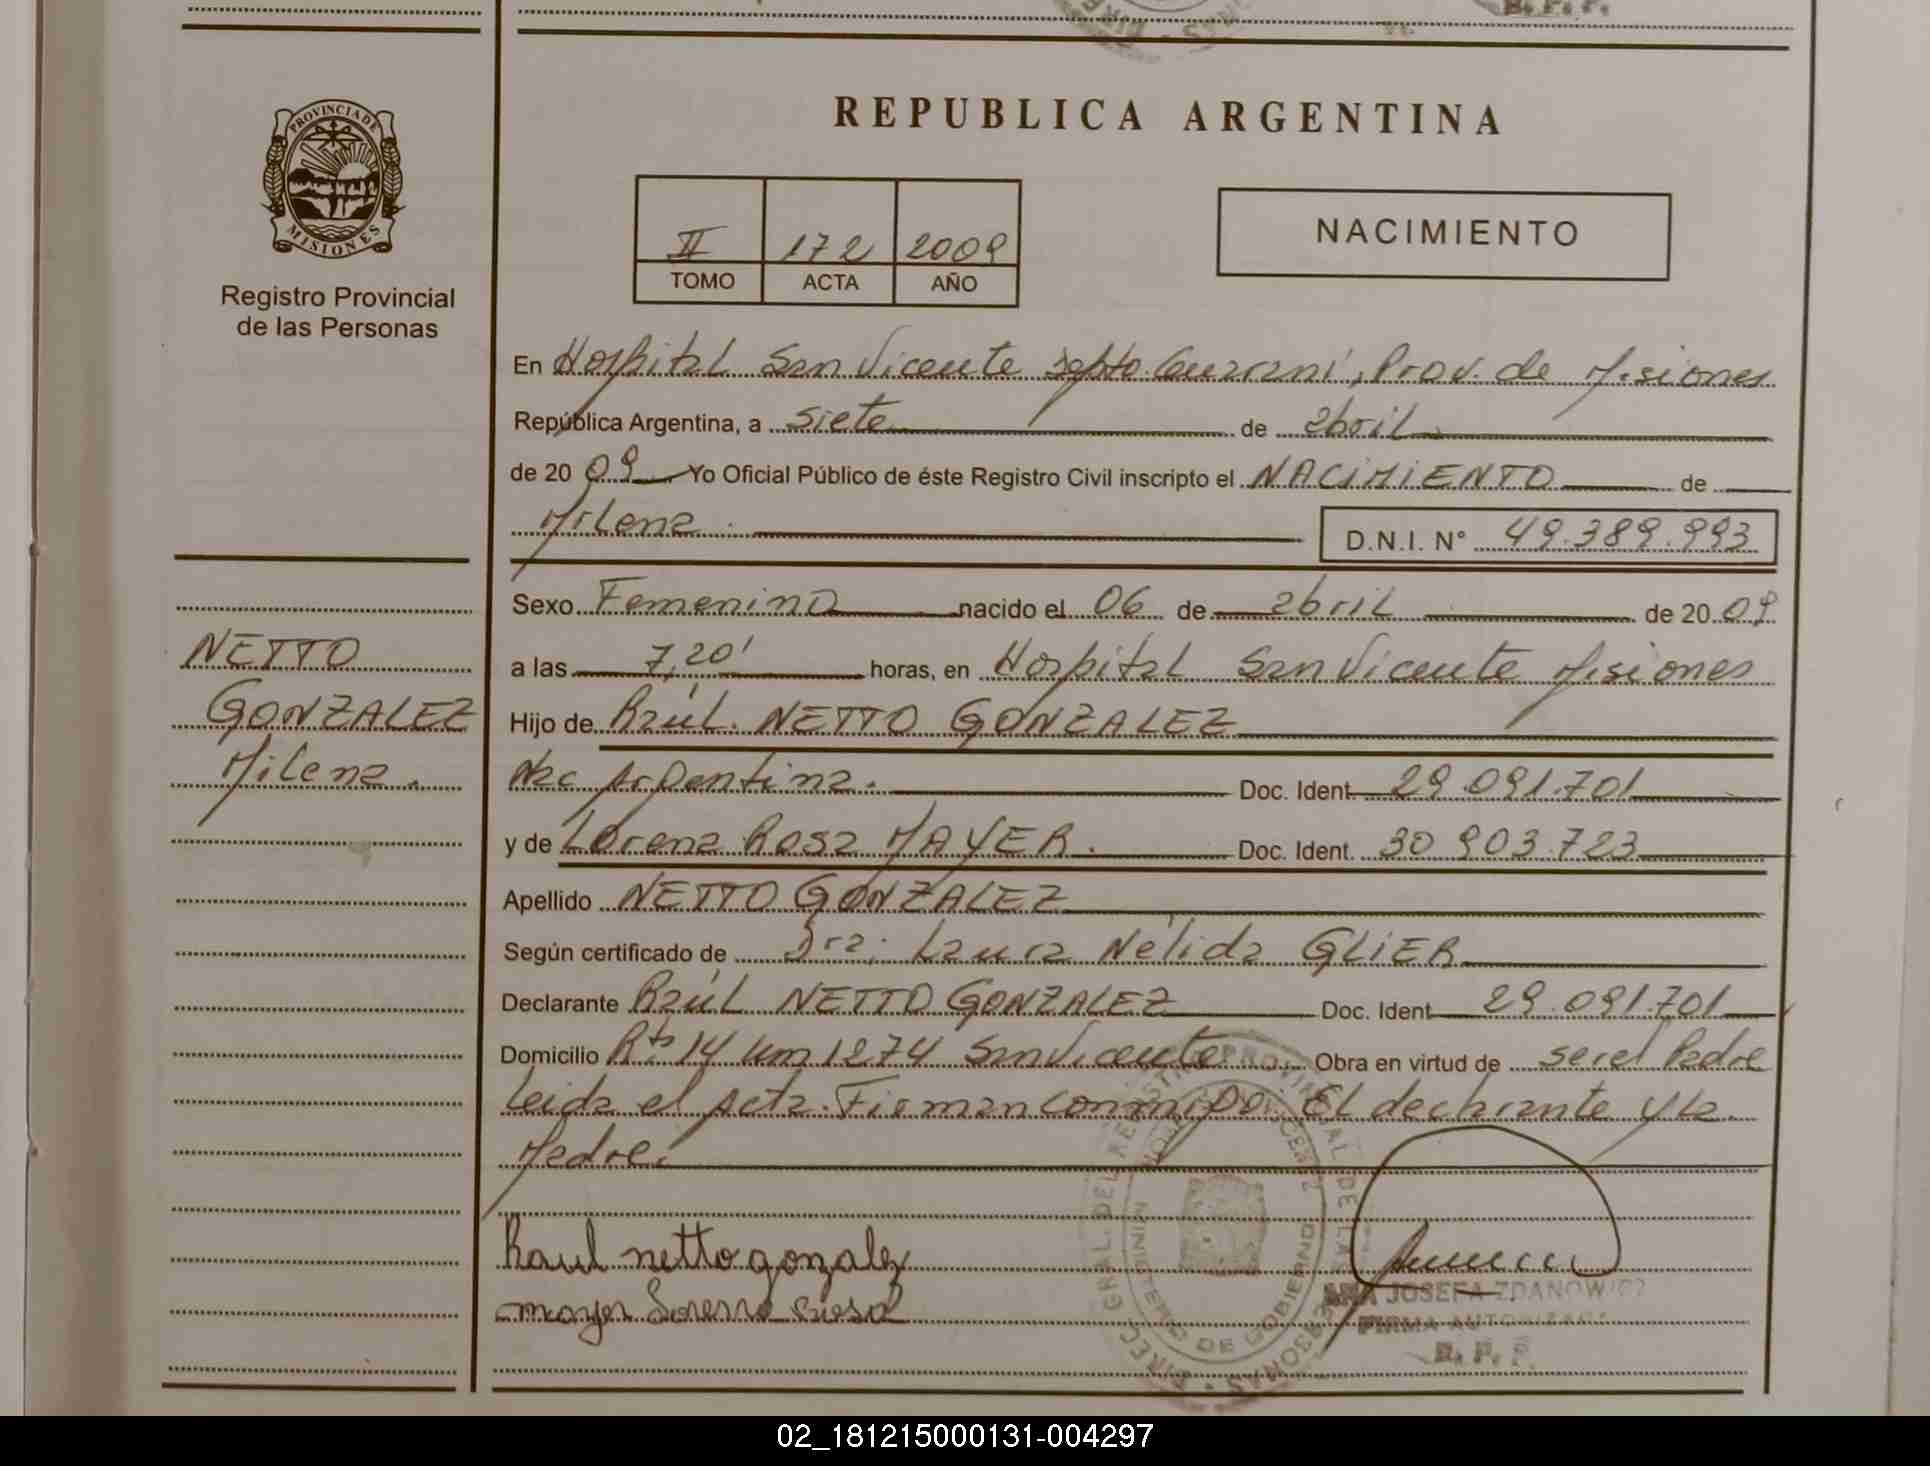 PROVINCIA DE
MISIONES
Registro Provincial
de las Personas
NETTO
GONZALEZ
Milena.
REPUBLICA ARGENTINA
II 172 2009
TOMO ACTA AÑO
NACIMIENTO
En Hospital San Vicente Depto. Guaraní, Prov. de Misiones
República Argentina, a siete de abril
de 20 09 Yo Oficial Público de éste Registro Civil inscripto el NACIMIENTO de
Milena.
D.N.I. N° 49.389.993
Sexo Femenino nacido el 06 de abril de 20 09
a las 7,20' horas, en Hospital San Vicente Misiones
Hijo de Raúl. NETTO GONZALEZ
Nac Argentina. Doc. Ident. 29.091.701
y de Lorena Rosa MAYER. Doc. Ident. 30 903.723
Apellido NETTO GONZALEZ
Según certificado de Dra: Laura Nélida GLIER
Declarante Raúl NETTO GONZALEZ Doc. Ident 29.091.701
Domicilio Rta 14 km 1274 San Vicente Obra en virtud de ser el Padre
Leida el acta. Firman conmigo. El declarante y la
Madre.
Raul netto gonzalez
mayer Lorena Rosa
DIRECC. GRAL. DEL REGISTRO PROVINCIAL DE LAS PERSONAS
MINISTERIO DE GOBIERNO
ANA JOSEFA ZDANOWICZ
FIRMA AUTORIZADA
R. P. P.
02_181215000131-004297